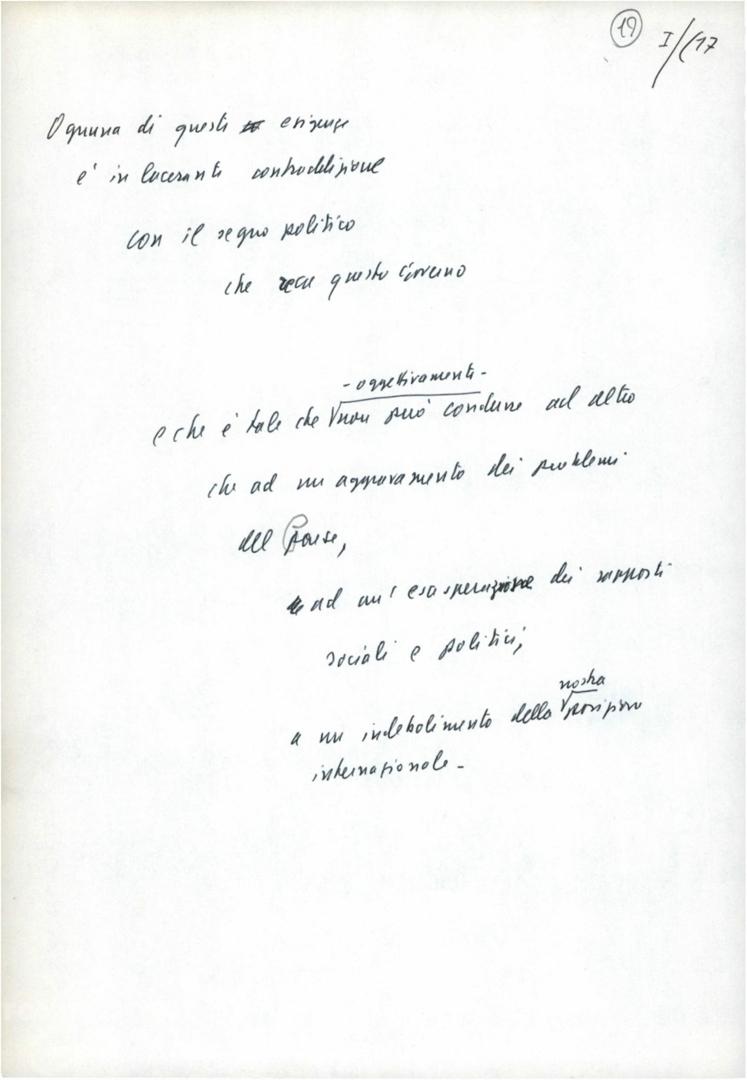 19 I/17
Ognuna di queste esigenze
è in lacerante contraddizione
con il segno politico
che reca questo Governo
- oggettivamente -
e che è tale che non può condurre ad altro
che ad un aggravamento dei problemi
del Paese,
ad un'esasperazione dei rapporti
sociali e politici,
nostra
a un indebolimento della posizione
internazionale -